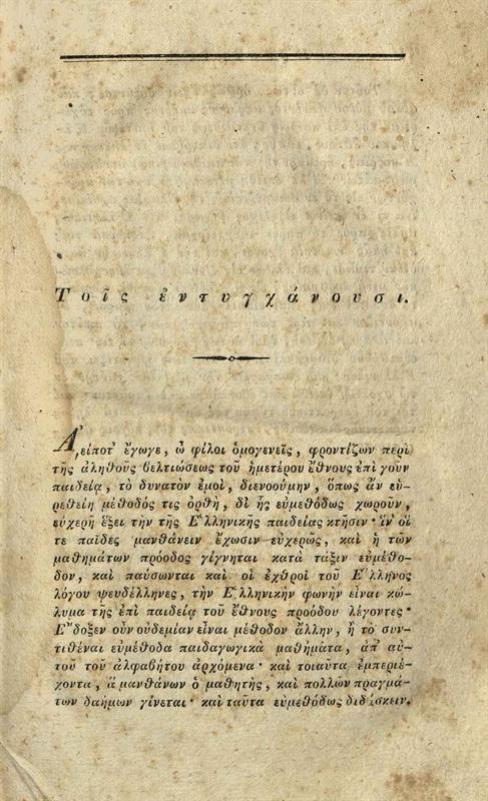 Τοῖς ἐντυγχάνουσι.
Ἀείποτ' ἔγωγε, ὦ φίλοι ὁμογενεῖς, φροντίζων περὶ
τῆς ἀληθοῦς βελτιώσεως τοῦ ἡμετέρου ἔθνους ἐπὶ γοῦν
παιδείᾳ, τὸ δυνατὸν ἐμοὶ, διενοούμην, ὅπως ἂν εὑ-
ρεθείη μέθοδός τις ὀρθὴ, δι' ἧς εὐμεθόδως χωροῦν,
εὐχερῆ ἕξει τὴν τῆς Ἑλληνικῆς παιδείας κτῆσιν· ἵν' οἵ
τε παῖδες μανθάνειν ἔχωσιν εὐχερῶς, καὶ ἡ τῶν
μαθημάτων πρόοδος γίγνηται κατὰ τάξιν εὐμέθο-
δον, καὶ παύσωνται καὶ οἱ ἐχθροὶ τοῦ Ἕλληνος
λόγου ψευδέλληνες, τὴν Ἑλληνικὴν φωνὴν εἶναι κώ-
λυμα τῆς ἐπὶ παιδείᾳ τοῦ ἔθνους προόδου λέγοντες·
Ἔδοξεν οὖν οὐδεμίαν εἶναι μέθοδον ἄλλην, ἢ τὸ συν-
τιθέναι εὐμέθοδα παιδαγωγικὰ μαθήματα, ἀπ' αὐ-
τοῦ τοῦ ἀλφαβήτου ἀρχόμενα· καὶ τοιαῦτα ἐμπεριέ-
χοντα, ἃ μανθάνων ὁ μαθητὴς, καὶ πολλῶν πραγμά-
των δαήμων γίνεται· καὶ ταῦτα εὐμεθόδως διδάσκειν.